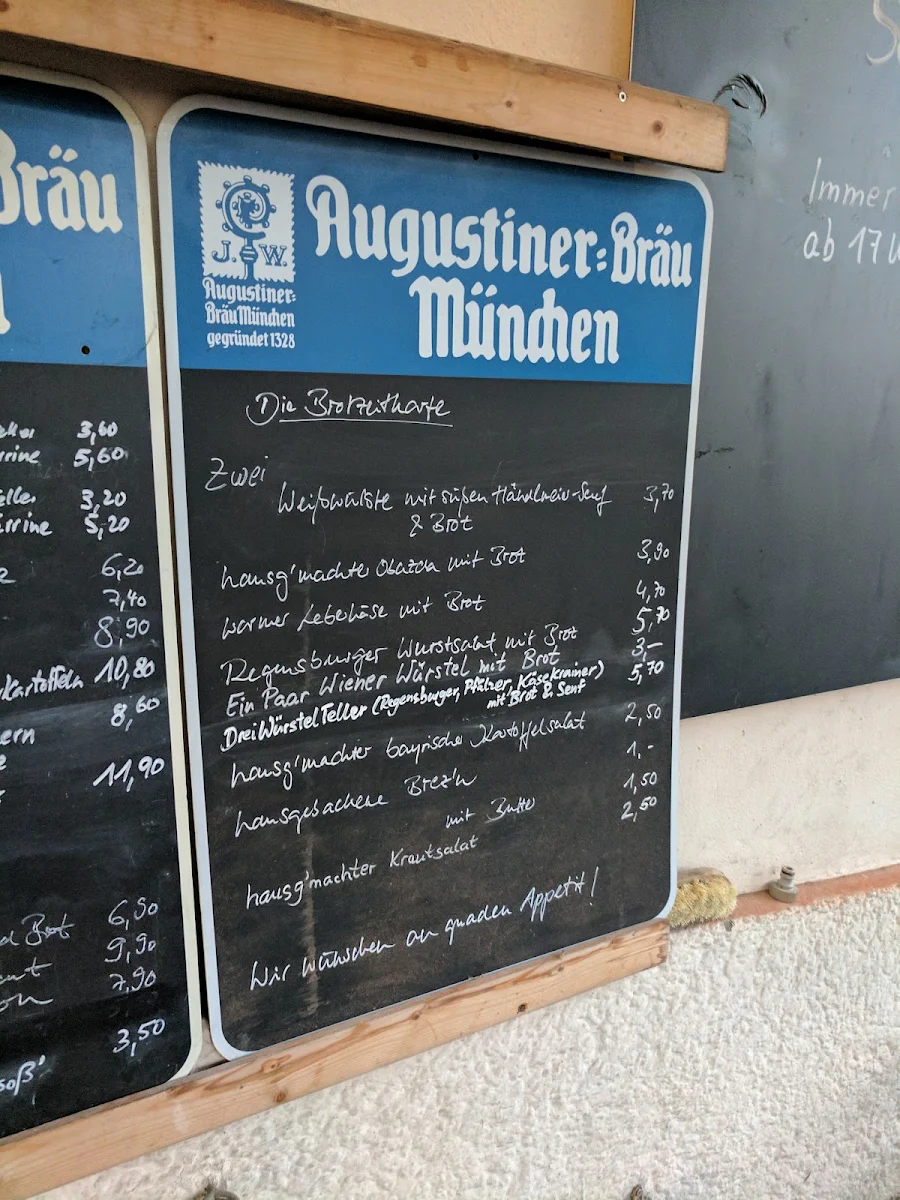 Bräu
3,60
rrine 5,60
eller 3,20
rrine 5,20
6,20
7,40
8,90
kartoffeln 10,80
8,60
ern
11,90
Brot 6,90
9,90
7,90
3,50
soß'
J. W.
Augustiner-
Bräu München
gegründet 1328
Augustiner-Bräu
München
Die Brotzeitkarte
Zwei
Weißwürste mit süßen Händlmeier-Senf 3,70
& Brot
hausg'machte Obazda mit Brot 3,90
warmer Leberkäse mit Brot 4,70
Regensburger Wurstsalat mit Brot 5,70
Ein Paar Wiener Würstel mit Brot 3,-
Drei Würstel Teller (Regensburger, Pfälzer, Käsekrainer) 5,70
mit Brot & Senf
hausg'machter bayrischer Kartoffelsalat 2,50
hausgebackene Brez'n 1,-
mit Butter 1,50
hausg'machter Krautsalat 2,50
Wir wünschen an guaden Appetit!
Immer
ab 17